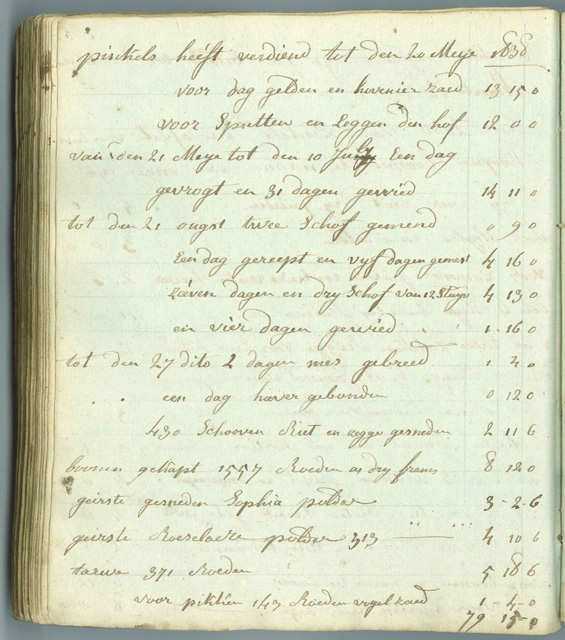 pinkels heeft verdiend tot den 20 Meye 1838
voor dag gelden en hovenier zaed 13 15 0
voor Spitten en Leggen den hof 12 0 0
van den 21 Meye tot den 10 July Een dag
gevrogt en 31 dagen gewied 14 11 0
tot den 21 ougst twee Schof gemend 0 9 0
Een dag gereept en vyf dagen gemest 4 16 0
Zeeven dagen en dry Schof van 12 Stuyv 4 13 0
en vier dagen gewied 1 - 16 0
tot den 27 dito 2 dagen mes gebreed 1 4 0
een dag haver gebonden 0 12 0
430 Schooven Riet en egge gesneden 2 11 6
boonen gekapt 1557 Roeden a dry francs 8 12 0
geirste gesneden Sophia polder 3 - 2 - 6
geirste Roeselaere polder 313 4 10 6
tarwe 371 Roeden 5 18 6
voor 143 Roeden 1 - 4 - 0
79 15 - 0